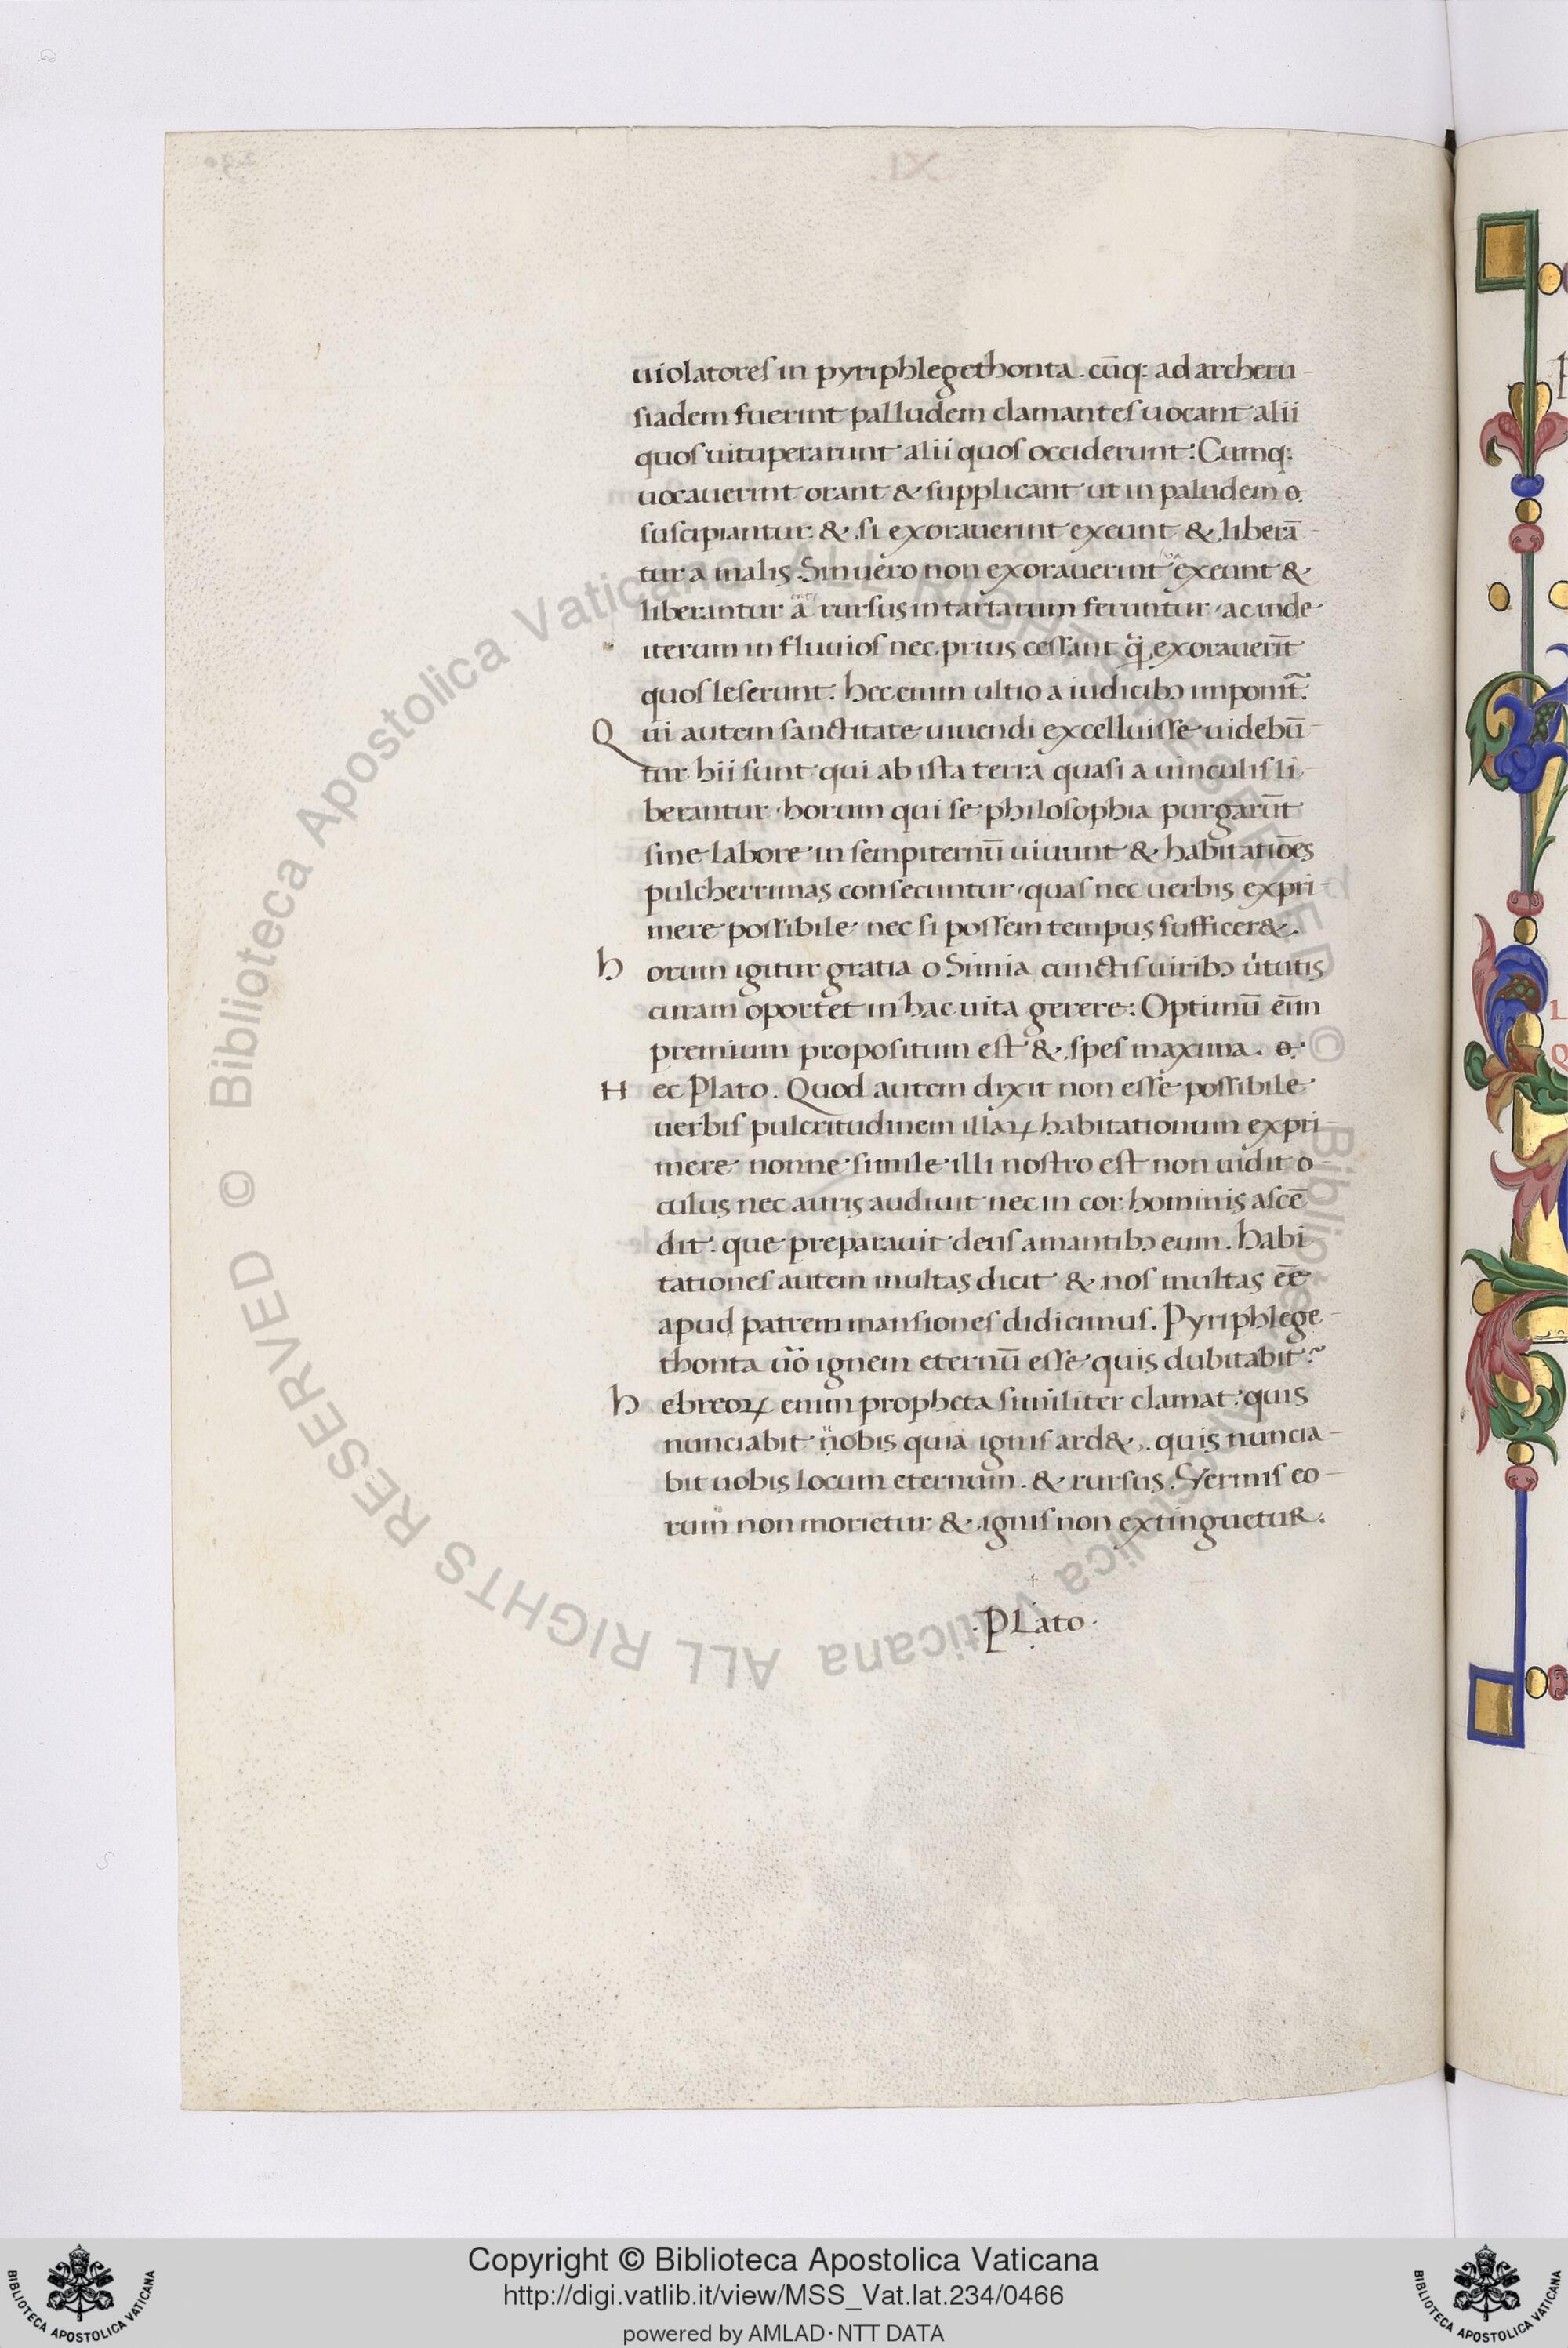 uiolatores in pyriphlegethonta. cūq: ad archeru-
siadem fuerint palludem clamantes uocant alii
quos uituperarunt alii quos occiderunt: Cumq:
uocauerint orant & supplicant ut in paludem
suscipiantur: & si exorauerint exeunt & liberā-
tur a malis. Sin uero non exorauerint exeunt &
liberantur rursus in tartarum feruntur, ac inde
iterum in fluuios nec prius cessant exorauerīt
quos leserunt. hec enim ultio a iudicibꝫ imponit̄.
Qui autem sanctitate uiuendi excelluisse uidebū-
tur hii sunt qui ab ista terra quasi a uinculis li-
berantur. horum qui se philosophia purgarūt
sine labore in sempiternū uiuunt & habitatiōes
pulcherrimas consecuntur, quas nec uerbis expri-
mere possibile nec si possem tempus sufficer&.
horum igitur gratia o Simia cunctis uiribꝫ u̇tutis
curam oportet in hac uita gerere: Optimū eīm
premium propositum est & spes maxima.
Hec Plato. Quod autem dixit non esse possibile
uerbis pulcritudinem illaꝝ habitationum expri-
mere nonne simile illi nostro est non uidit o-
culus nec auris audiuit nec in cor hominis ascē-
dit. que preparauit deus amantibꝫ eum. habi-
tationes autem multas dicit & nos multas eē
apud patrem mansiones didicimus. Pyriphlege-
thonta ūo ignem eternū esse quis dubitabit?
hebreoꝝ enim propheta similiter clamat: quis
nunciabit nobis quia ignis ard&. quis nuncia-
bit uobis locum eternum. & rursus. Vermis eo-
rum non morietur & ignis non extinguetur.
.PLato.
Copyright © Biblioteca Apostolica Vaticana
http://digi.vatlib.it/view/MSS_Vat.lat.234/0466
powered by AMLAD·NTT DATA
BIBLIOTECA APOSTOLICA VATICANA
BIBLIOTECA APOSTOLICA VATICANA
© Biblioteca Apostolica Vaticana ALL RIGHTS RESERVED
© Biblioteca Apostolica Vaticana ALL RIGHTS RESERVED